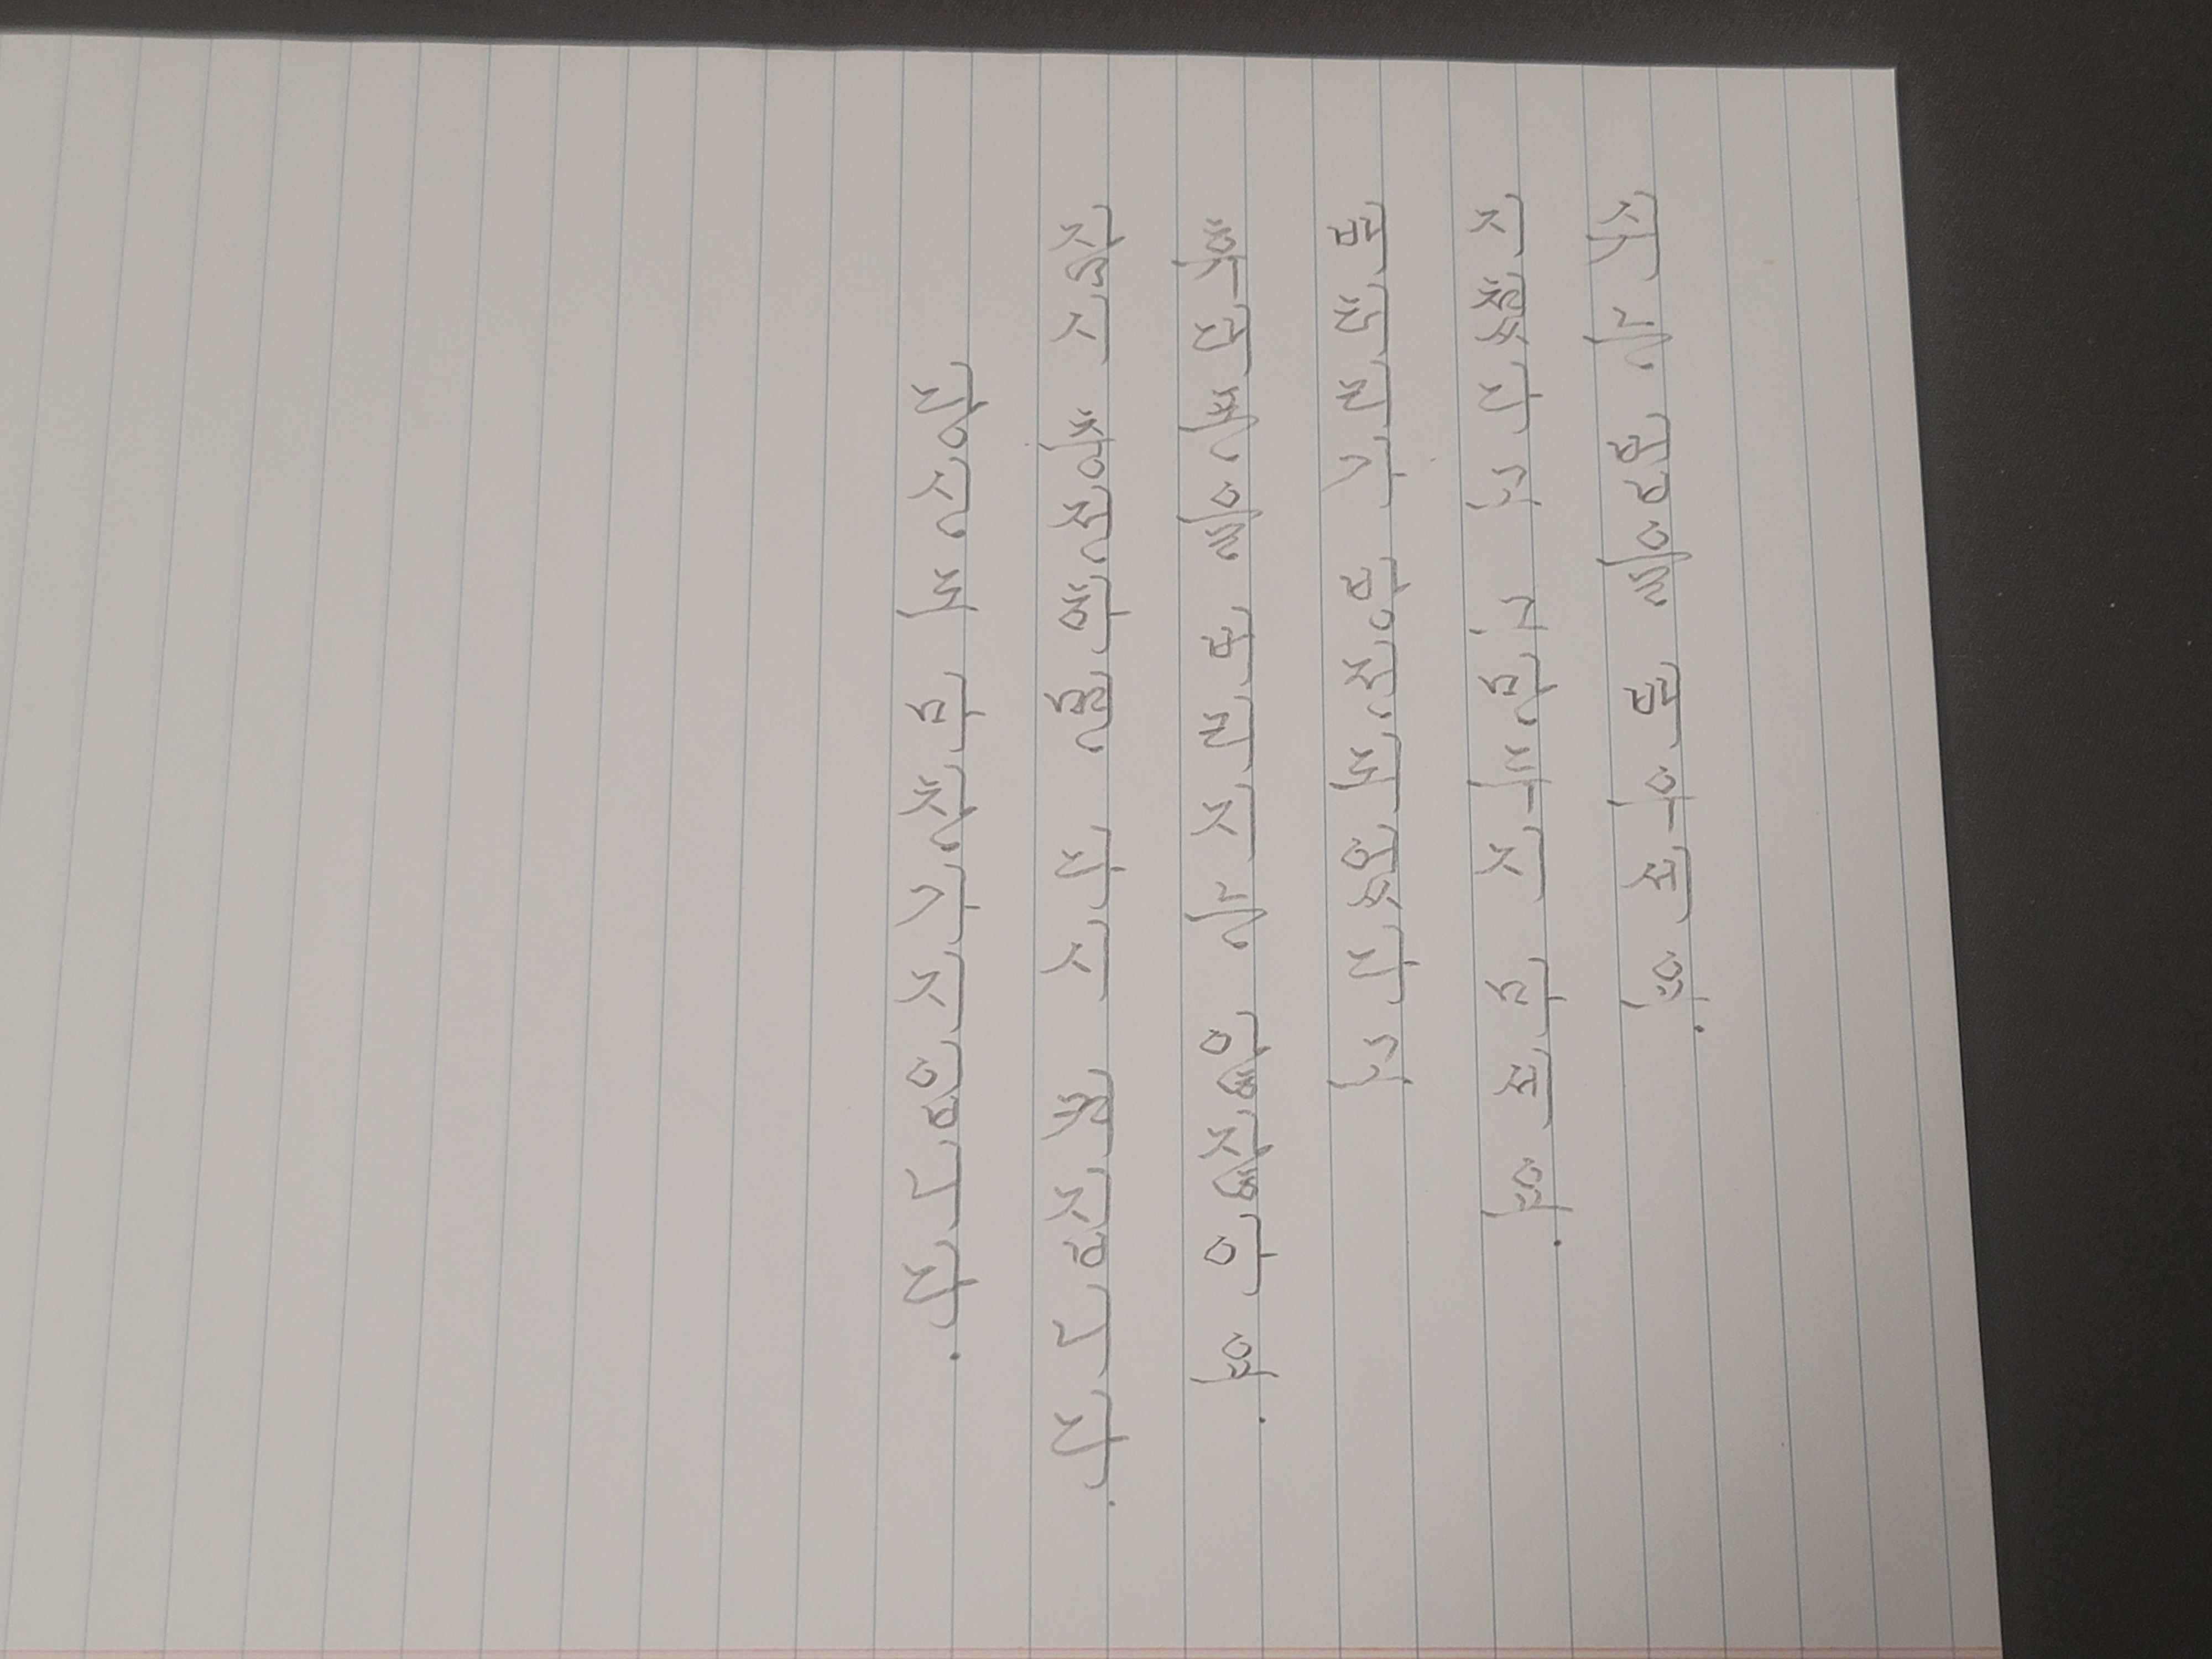 쉬는 법을 배우세요.
지쳤다고 그만두지 마세요.
배터리가 방전되었다고
휴대폰을 버리지는 않잖아요.
잠시 충전하면 다시 켜집니다.
당신도 마찬가지입니다.